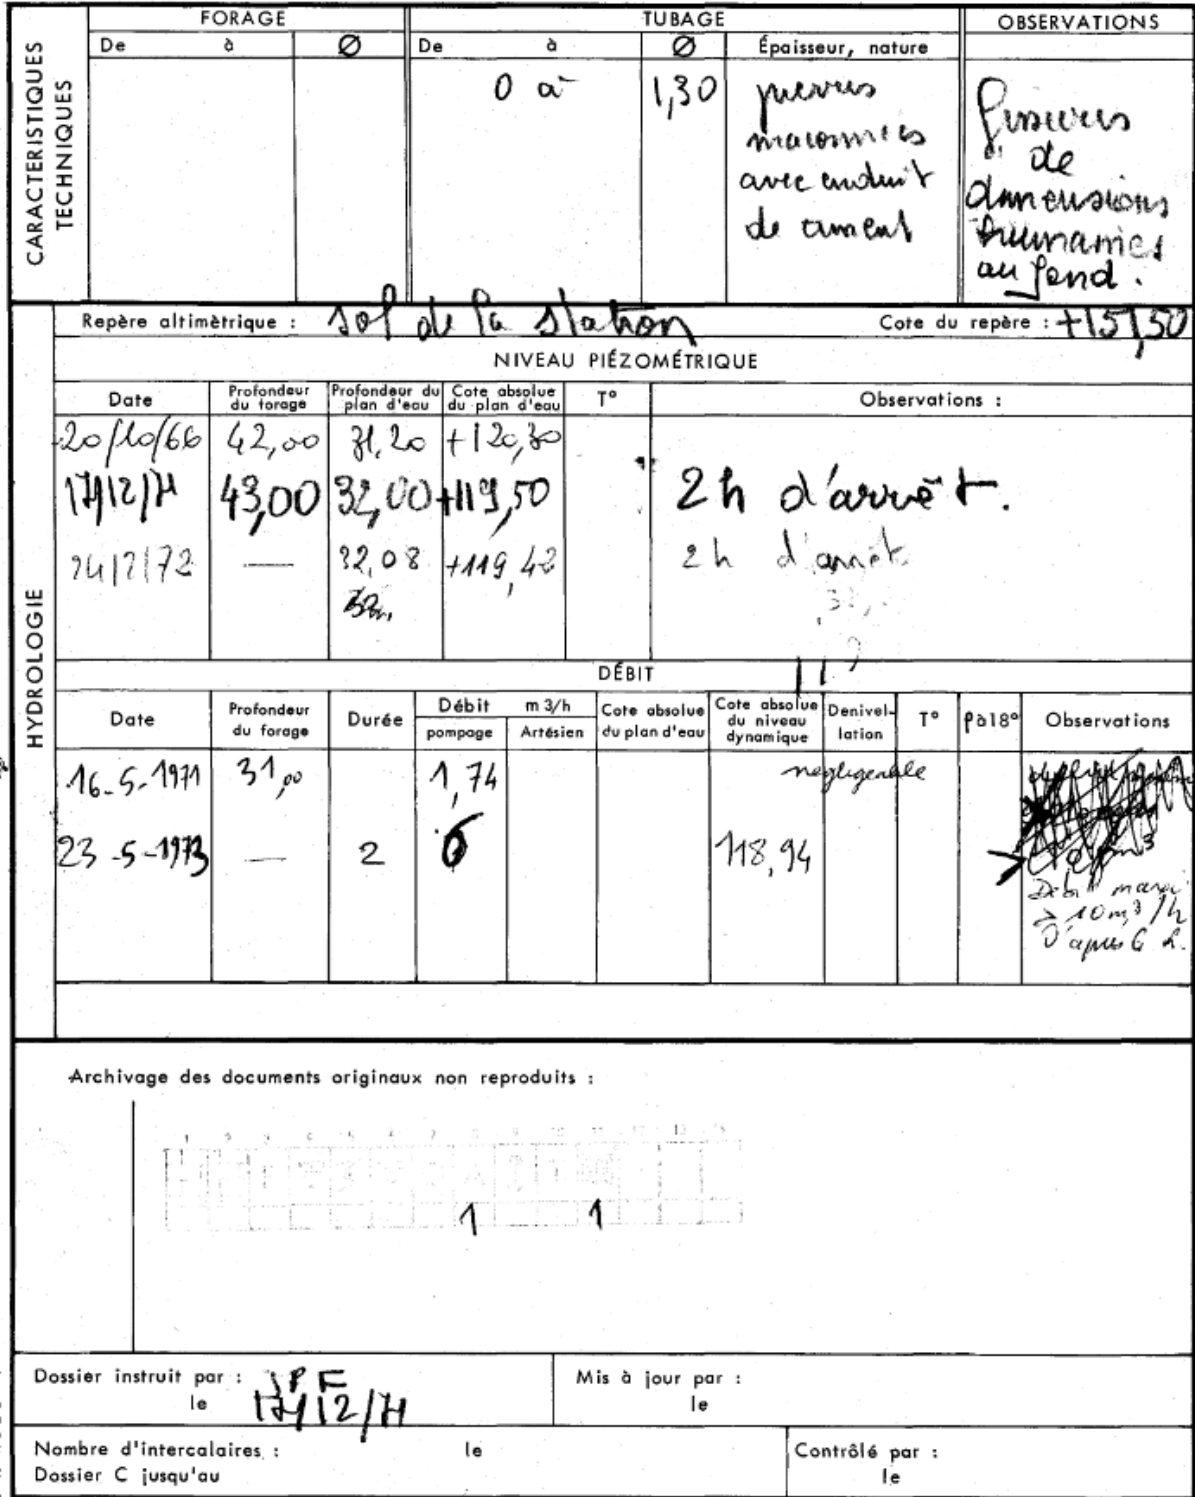 CARACTERISTIQUES TECHNIQUES
FORAGE TUBAGE OBSERVATIONS
De à Ø De à Ø Épaisseur, nature
0 à 1,30 pierres
maconnées
avec enduit
de ciment
fissures
de
dimensions
humaines
au fond.
HYDROLOGIE
Repère altimètrique : sol de la station Cote du repère : +151,50
NIVEAU PIÉZOMÉTRIQUE
Date Profondeur du forage Profondeur du plan d'eau Cote absolue du plan d'eau T° Observations :
20/10/66 42,00 31,20 +120,30
17/12/71 43,00 32,00 +119,50 2h d'arrêt.
24/2/72 — 32,08 +119,42 2h d'arrêt
DÉBIT
Date Profondeur du forage Durée Débit m3/h pompage Artésien Cote absolue du plan d'eau Cote absolue du niveau dynamique Denivel-lation T° ρà18° Observations
16-5-1971 31,00 1,74 negligeable
23-5-1973 — 2 6 118,94
Débit
> 10 m3/h
D'apres
Archivage des documents originaux non reproduits :
1 1
Dossier instruit par : JPF Mis à jour par :
le 17/12/71 le
Nombre d'intercalaires : le Contrôlé par :
Dossier C jusqu'au le